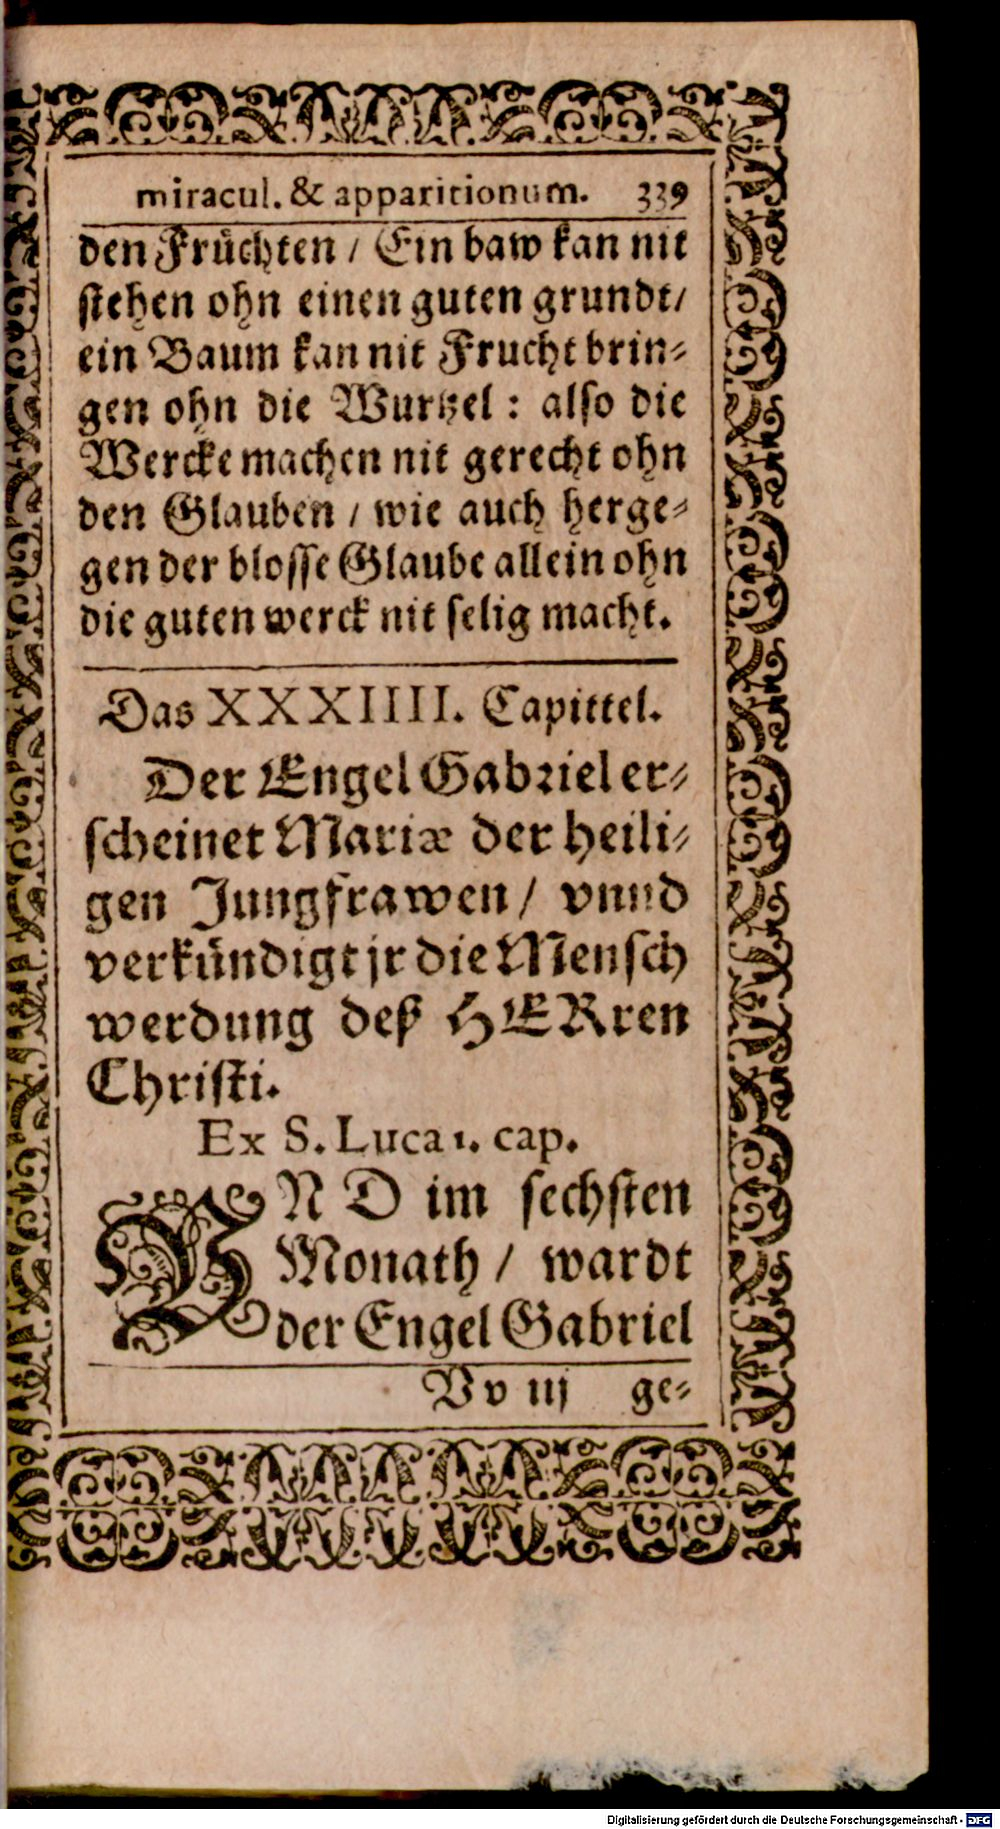 miracul. & apparitionum. 339
den Früchten / Ein baw kan nit
stehen ohn einen guten grundt/
ein Baum kan nit Frucht brin-
gen ohn die Wurtzel : also die
Wercke machen nit gerecht ohn
den Glauben / wie auch herge-
gen der blosse Glaube allein ohn
die guten werck nit selig macht.
Das XXXIIII. Capittel.
Der Engel Gabriel er-
scheinet Mariæ der heili-
gen Jungfrawen / vnnd
verkündigt jr die Mensch
werdung deß HERren
Christi.
Ex S. Luca 1. cap.
VND im sechsten
Monath / wardt
der Engel Gabriel
Vv iij ge-
Digitalisierung gefördert durch die Deutsche Forschungsgemeinschaft - DFG